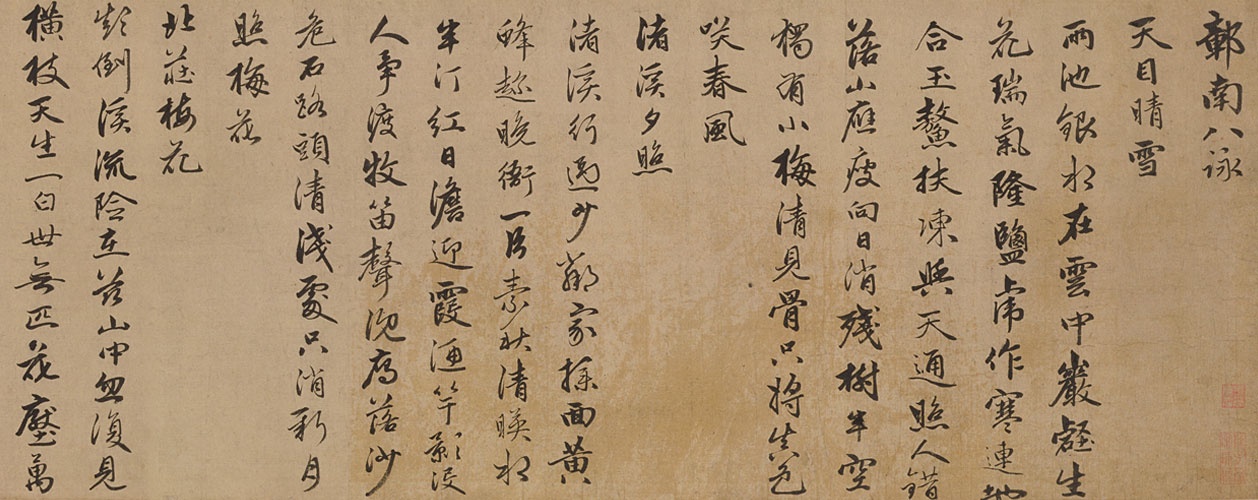 鄣南八詠
天目晴雪
兩池銀水在雲中巖壑生
花瑞氣隆鹽虎作寒連地
合玉鰲扶凍與天通照人錯
落山應瘦向日消殘樹半空
獨有小梅清見骨只將真色
咲春風
渚溪夕照
渚溪行遍少鄰家採面黄
蜂趁晚衙一片素秋清暎水
半汀紅日澹迎霞酒竿影沒
人爭渡牧笛聲沉鴈落沙
危石路頭清淺處只消新月
照梅花
北莊梅花
影倒溪流險在茲山中忽復見
橫枝天生一白世無匹花壓萬